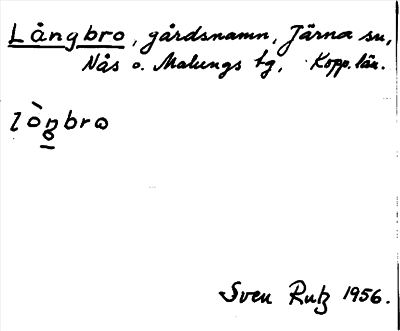 Långbro, gårdsnamn, Järna sn,
Nås o. Malungs tg, Kopp. län.
lòŋbro
Sven Rutz 1956.